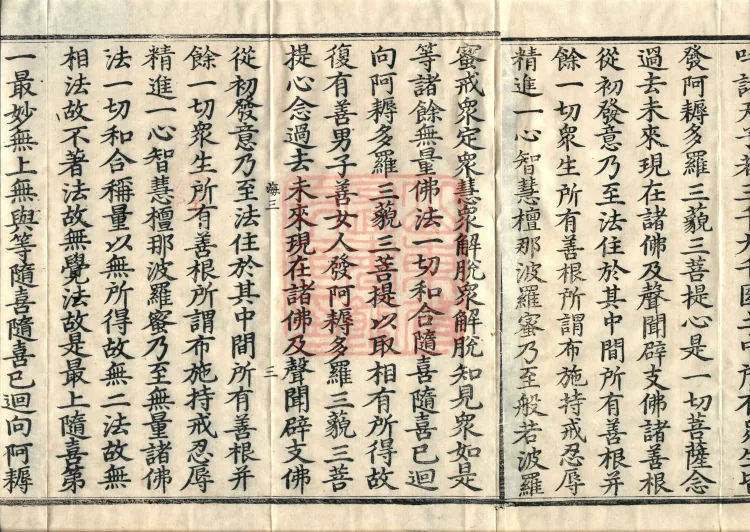 發阿耨多羅三藐三菩提心是一切菩薩念
過去未來現在諸佛及聲聞辟支佛諸善根
從初發意乃至法住於其中間所有善根并
餘一切衆生所有善根所謂布施持戒忍辱
精進一心智慧檀那波羅蜜乃至般若波羅
蜜戒衆定衆慧衆解脫衆解脫知見衆如是
等諸餘無量佛法一切和合隨喜隨喜已迴
向阿耨多羅三藐三菩提以取相有所得故
復有善男子善女人發阿耨多羅三藐三菩
提心念過去未來現在諸佛及聲聞辟支佛
海三 三
從初發意乃至法住於其中間所有善根并
餘一切衆生所有善根所謂布施持戒忍辱
精進一心智慧檀那波羅蜜乃至無量諸佛
法一切和合稱量以無所得故無二法故無
相法故不著法故無覺法故是最上隨喜第
一最妙無上無與等隨喜隨喜已迴向阿耨